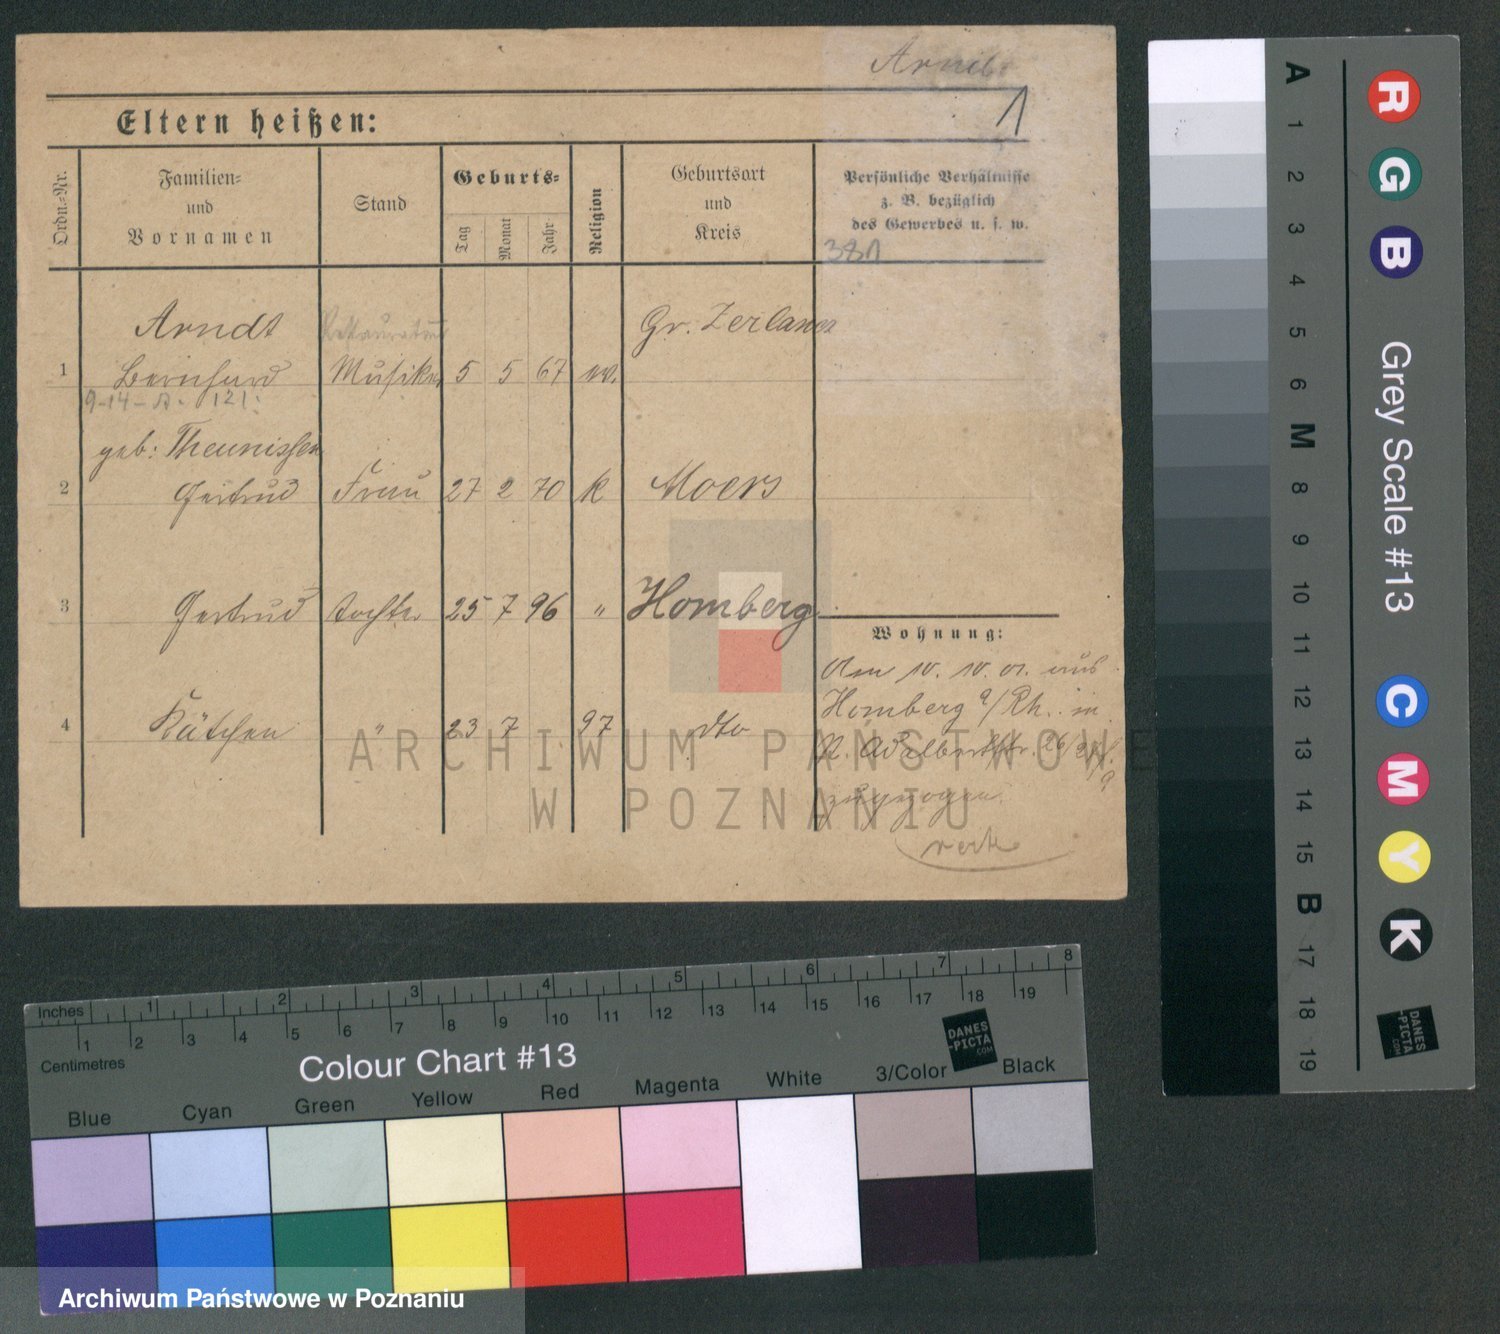 1
Eltern heißen:
Ordn.-Nr.
Familien-
und
Vornamen
Stand
Geburts-
Tag
Monat
Jahr
Religion
Geburtsort
und
Kreis
Persönliche Verhältnisse
z. B. bezüglich
des Gewerbes u. s. w.
381
Arndt Gr.
1 Bernhard Musiker 5 5 67 ev.
9-14-A. 121.
geb: Theunissen
2 Gertrud Frau 27 2 70 k Moers
3 Gertrud Tochter 25 7 96 " Homberg
4 Kätchen " 23 7 97 dto
Wohnung:
Am 10. 10. 01. aus
Homberg a/Rh. in
P. Adalbertstr. 26/27
zugezogen.
ARCHIWUM PAŃSTWOWE
W POZNANIU
Inches 1 2 3 4 5 6 7 8
1 2 3 4 5 6 7 8 9 10 11 12 13 14 15 16 17 18 19
Centimetres
Colour Chart #13
DANES
-PICTA
.COM
Blue Cyan Green Yellow Red Magenta White 3/Color Black
A 1 2 3 4 5 6 M 8 9 10 11 12 13 14 15 B 17 18 19
R G B
Grey Scale #13
C M Y K
DANES
-PICTA
.COM
Archiwum Państwowe w Poznaniu